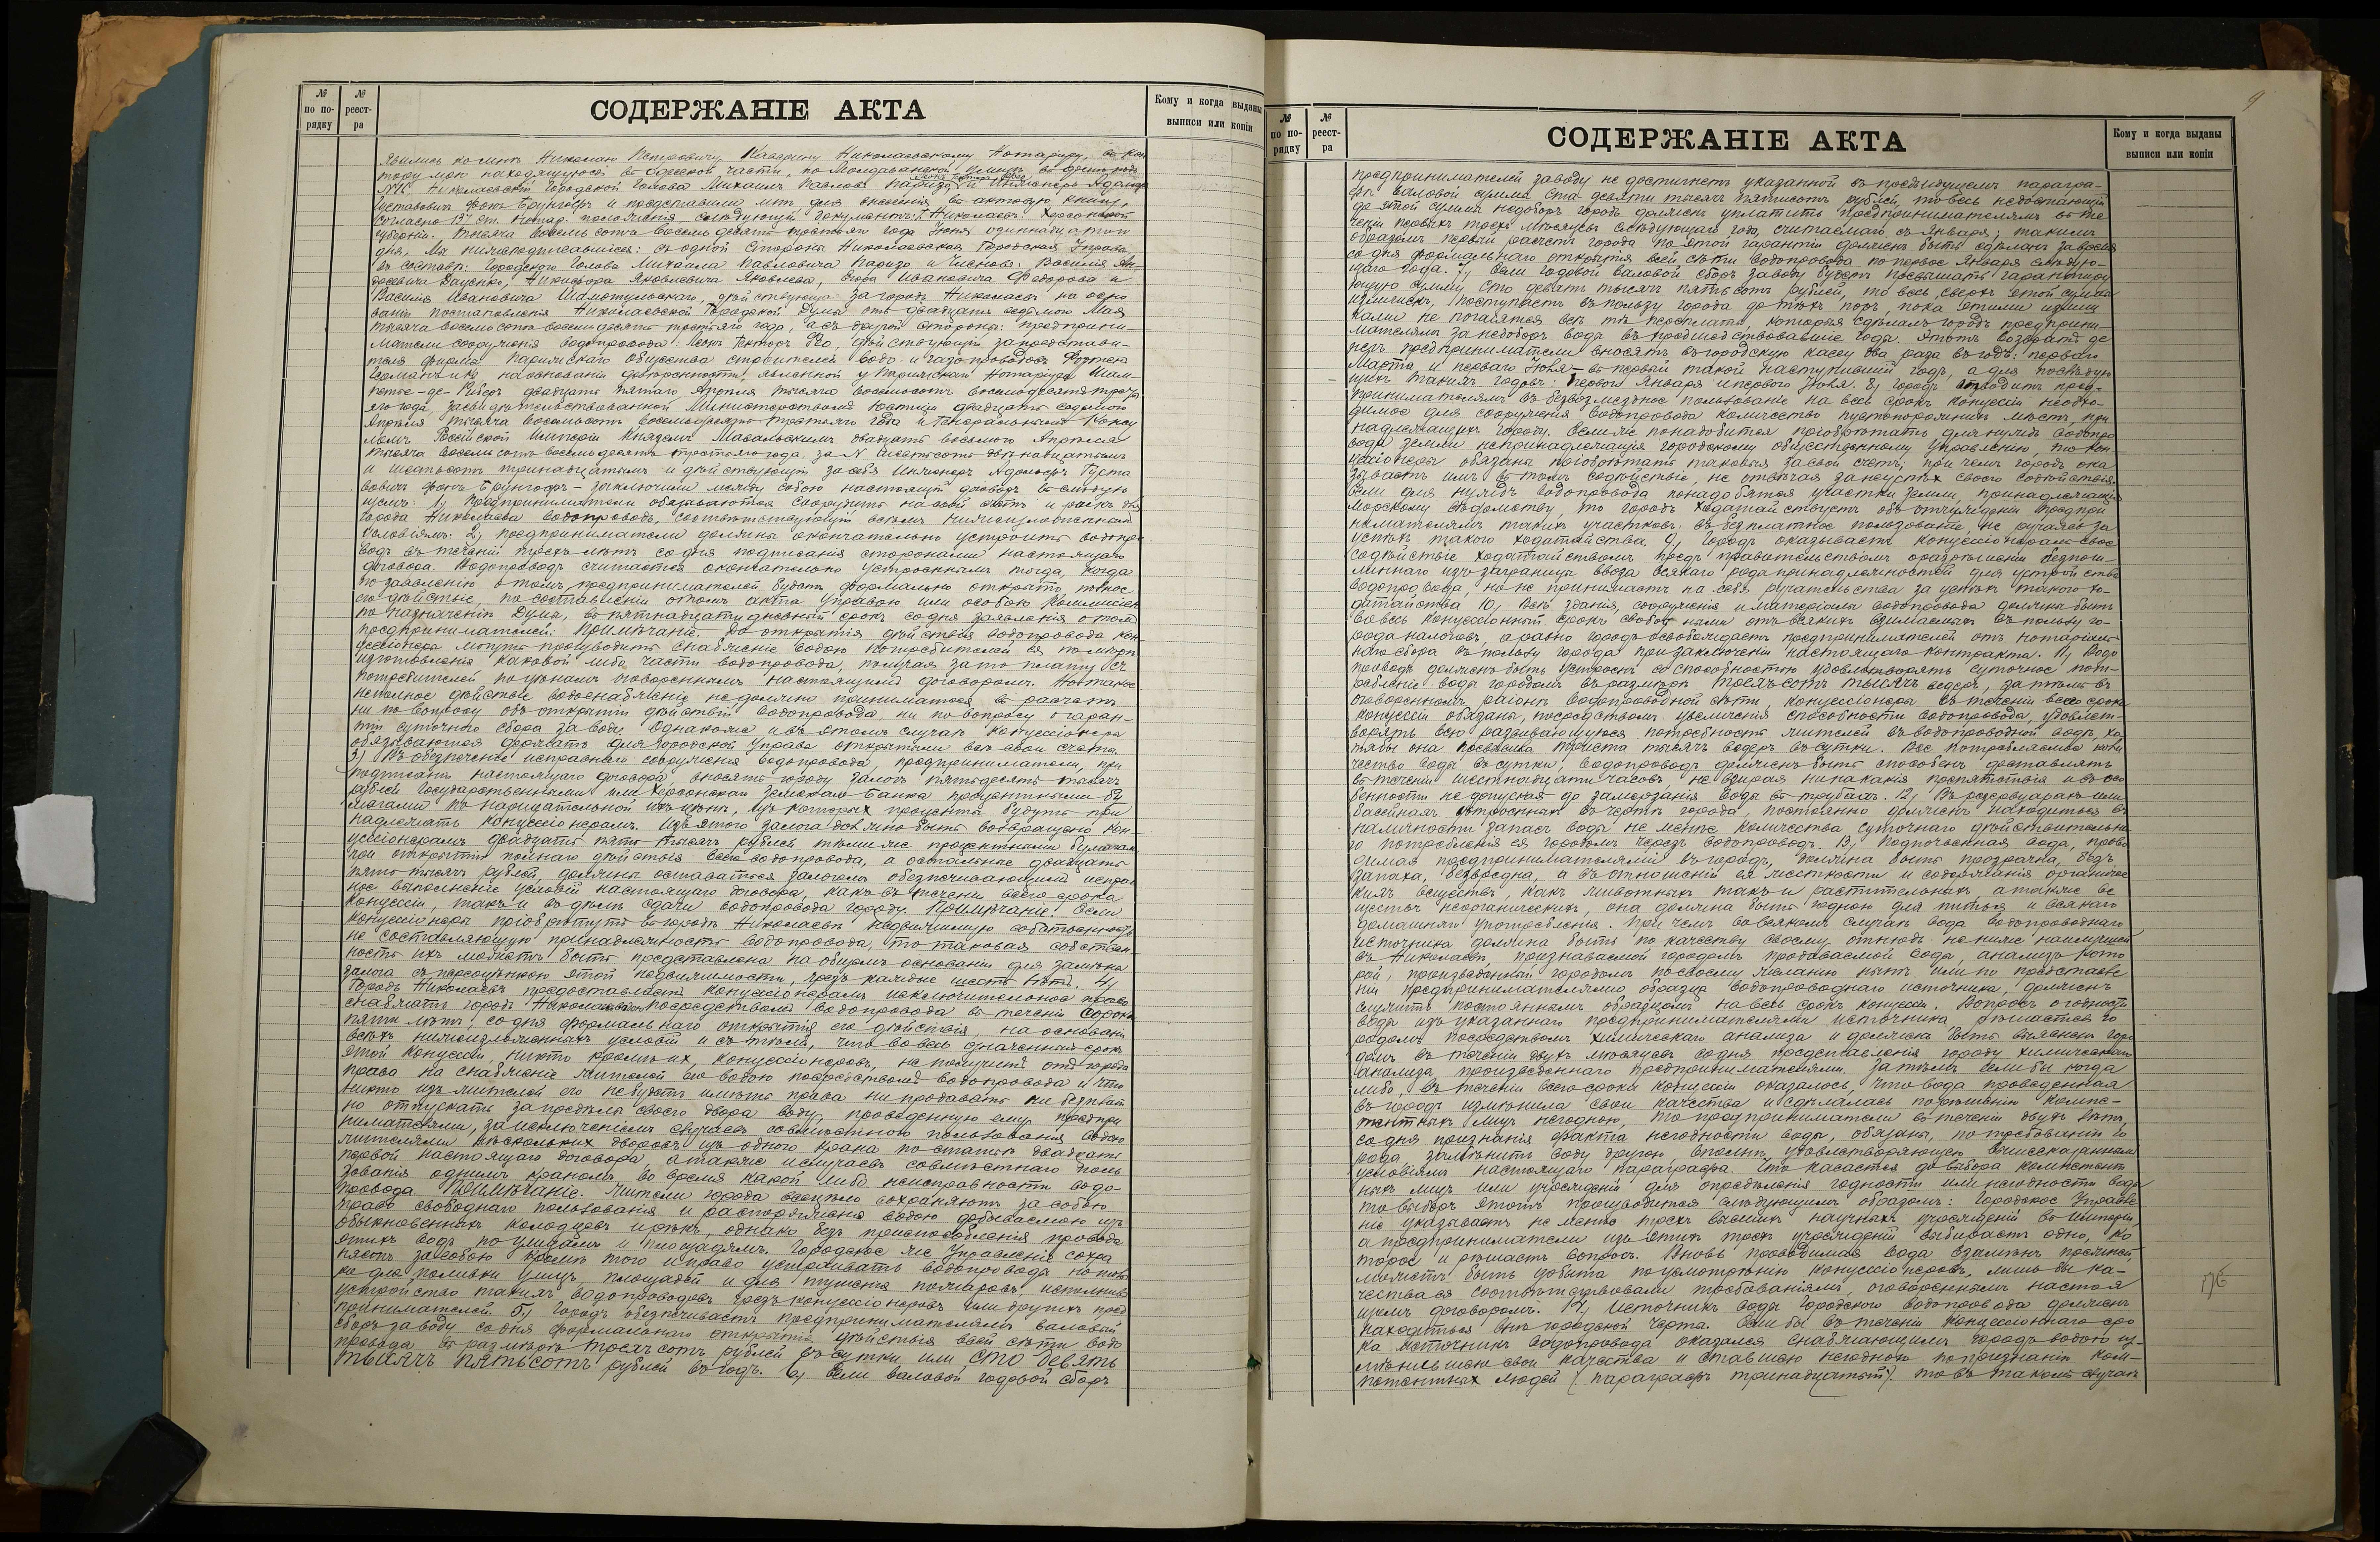 № по по-рядку
№ реест-ра
СОДЕРЖАНІЕ АКТА
Кому и когда выданы выписи или копіи
явились ко мнѣ Николаю Петровичу Николаевскому Нотаріусу, въ кон
тору мою находящуюся въ Одесской части, по Молдаванской улицѣ въ домѣ подъ
Николаевскій Городской Голова Михаилъ Павловъ Паризо и Инженеръ Адольфъ
Густавовичъ фонъ Брунгофъ и представили мнѣ для внесенія въ актовую книгу,
согласно ст. Нотар. положенія слѣдующій документъ: Николаевъ. Херсонской
губерніи. Тысяча восемьсотъ восемьдесятъ третьяго года Іюня одиннадцатаго
дня, Мы нижеподписавшіеся: съ одной Стороны Николаевская Городская Управа,
въ составѣ: Городского Головы Михаила Павловича Паризо и Членовъ: Василія
Даценко, Никифора Яковлевича Яковлева, Ивановича Федорова и
Василія Ивановича Шамотульскаго, дѣйствующа за городъ Николаевъ на осно
ваніи постановленія Николаевской Городской Думы отъ двадцать седьмого Мая
тысяча восемьсотъ восемьдесятъ третьяго года, а съ другой стороны: предприни-
матели сооруженія водопровода: Леонъ Викторъ дѣйствующій за представи-
теля фирмы Парижскаго общества строителей водо- и газопроводовъ
на основаніи довѣренности, явленной у Парижскаго Нотаріуса
двадцать пятаго Апрѣля тысяча восемьсотъ восемьдесятъ треть
яго года, засвидѣтельствованной Министерствомъ Юстиціи двадцать седьмого
Апрѣля тысяча восемьсотъ восемьдесятъ третьяго года и Генеральнымъ Консу
ломъ Россійской Имперіи Княземъ двадцать восьмого Апрѣля
тысяча восемьсотъ восемьдесятъ третьяго года за № шестьсотъ двѣнадцатымъ
и шестьсотъ тринадцатымъ и дѣйствующій за себя Инженеръ Адольфъ Густа
вовичъ фонъ Брунгофъ – заключили между собою настоящій договоръ въ слѣдую
щемъ: 1) Предприниматели обязываются соорудить на свой счетъ и рискъ для
города Николаева водопроводъ, соотвѣтствующій всѣмъ нижеизложеннымъ
условіямъ: 2) предприниматели должны окончательно устроить водопро
водъ въ теченіи трехъ лѣтъ со дня подписанія сторонами настоящаго
договора. Водопроводъ считается окончательно устроеннымъ тогда, когда
по заявленію о томъ предпринимателей будетъ формально открыто полное
его дѣйствіе, по составленіи о томъ акта Управою или особою Коммисіею
по назначенію Думы, въ пятнадцатидневный срокъ со дня заявленія о томъ
предпринимателей. Примѣчаніе. До открытія дѣйствія водопровода кон
цессіонеры могутъ производить снабженіе водою потребителей ея по мѣрѣ
изготовленія каковой либо части водопровода, получая за то плату съ
потребителей по цѣнамъ оговореннымъ настоящимъ договоромъ. Но такое
неполное дѣйствіе водоснабженіе не должно приниматься въ расчетъ
ни по вопросу объ открытіи дѣйствій водопровода, ни по вопросу о гаран-
тіи суточного сбора за воду. Однакоже и въ этомъ случаѣ концессіонеры
обязываются держать для городской Управы открытыми всѣ свои счета.
3) Въ обезпеченіе исправнаго сооруженія водопровода, предприниматели, при
подписаніи настоящаго договора, вносятъ городу залогъ пятьдесятъ тысячъ
рублей Государственными или Херсонскаго Земскаго Банка процентными бу
магами по нарицательной ихъ цѣнѣ, изъ которыхъ проценты будутъ при
надлежать концессіонерамъ. Изъ этого залога должно быть возвращено кон
цессіонерамъ двадцать пять тысячъ рублей тѣми же процентными бумагами
при открытіи полнаго дѣйствія всего водопровода, а остальные двадцать
пять тысячъ рублей, должны оставаться залогомъ обезпечивающимъ исправ
ное выполненіе условій настоящаго договора, какъ въ теченіи всего срока
концессіи, такъ и въ дѣлѣ сдачи водопровода городу. Примѣчаніе. Если
концессіонеры пріобрѣтутъ въ городѣ Николаевѣ недвижимую собственность
не составляющую принадлежности водопровода, то таковая собствен
ность ихъ можетъ быть представлена на общемъ основаніи для замѣна
залога съ переоцѣнкою этой недвижимости, чрезъ каждые шесть лѣтъ. 4)
Городъ Николаевъ предоставляетъ концессіонерамъ исключительное право
снабжать городъ Николаевъ водою посредствомъ водопровода въ теченіи сорока
пяти лѣтъ, со дня формальнаго открытія его дѣйствія на основаніи
всѣхъ нижеизложенныхъ условій и съ тѣмъ, что во весь означенный срокъ
этой концессіи, никто кромѣ ихъ, концессіонеровъ, не получитъ отъ города
права на снабженіе жителей его водою посредствомъ водопровода и что
никто изъ жителей его не будетъ имѣть права ни продавать ни безплат
но отпускать за предѣлы своего двора воду, проведенную ему предпри
нимателями, за исключеніемъ случаевъ совмѣстнаго пользованія водою
жителями нѣсколькихъ дворовъ изъ одного крана по статьѣ двадцать
первой настоящаго договора, а также и случаевъ совмѣстнаго поль
зованія однимъ краномъ во время какой либо неисправности водо-
провода. Примѣчаніе. Жители города всецѣло сохраняютъ за собою
право свободнаго пользованія и распоряженія водою добываемою изъ
обыкновенныхъ колодцевъ и рѣкъ, однако безъ приспособленія провода
этихъ водъ по улицамъ и площадямъ. Городское же Управленіе сохра
няетъ за собою кромѣ того и право устраивать водопровода
для поливки улицъ, площадей и для тушенія пожаровъ, исполнивъ
устройство такихъ водопроводовъ чрезъ концессіонеровъ или другихъ пред
принимателей. 5) Городъ обезпечиваетъ предпринимателямъ валовый
сборъ за воду со дня формальнаго открытія дѣйствія всей сѣти водо
провода въ размѣрѣ трехъ сотъ рублей въ сутки или, сто девять
тысячъ пятьсотъ рублей въ годъ. 6) Если валовой годовой сборъ
9
№ по по-рядку
№ реест-ра
СОДЕРЖАНІЕ АКТА
Кому и когда выданы выписи или копіи
предпринимателей за воду не достигнетъ указанной въ предъидущемъ парагра-
фѣ валовой суммы ста девяти тысячъ пятисотъ рублей, то весь недостающій
до этой суммы недоборъ городъ долженъ уплатить предпринимателямъ въ те
ченіи первыхъ трехъ мѣсяцевъ слѣдующаго года, считаемаго съ Января; такимъ
образомъ первый расчетъ города по этой гарантіи долженъ быть сдѣланъ за время
со дня формальнаго открытія всей сѣти водопровода по первое Января слѣдую-
щаго года. 7) Если годовой валовой сборъ за воду будетъ превышать гарантиру
ющую сумму сто девять тысячъ пятьсотъ рублей, то весь, сверхъ этой суммы
излишекъ, поступаетъ въ пользу города до тѣхъ поръ, пока этими излиш
ками не погасятся всѣ тѣ переплаты, которыя сдѣлалъ городъ предприни-
мателямъ за недоборъ воды въ предшедствовавшіе года. Этотъ возвратъ де
негъ предприниматели вносятъ въ городскую кассу два раза въ годъ: перваго
Марта и перваго Іюня – въ первый такой наступившій годъ, а для послѣдую
щихъ такихъ годовъ: перваго Января и перваго Іюня. 8) Городъ отводитъ пред-
принимателямъ въ безвозмездное пользованіе на весь срокъ концессіи необхо-
димое для сооруженія водопровода количество пустопорожнихъ мѣстъ, при
надлежащихъ городу. Если же понадобится пріобрѣтать для нуждъ водопро
вода земли непринадлежащія городскому общественному Управленію, то кон-
цессіонеры обязаны пріобрѣтать таковыя за свой счетъ, при чемъ городъ ока
зываетъ имъ въ томъ содѣйствіе, не отвѣчая за неуспѣхъ своего содѣйствія.
Если для нуждъ водопровода понадобятся участки земли, принадлежащіе
Морскому вѣдомству, то городъ ходатайствуетъ объ отчужденіи предпри
нимателямъ такихъ участковъ въ безплатное пользованіе, не ручаясь за
успѣхъ такого ходатайства. 9) Городъ оказываетъ концессіонерамъ свое
содѣйствіе ходатайствомъ предъ правительствомъ о разрѣшеніи безпош-
линнаго изъ заграницы ввоза всякаго рода принадлежностей для устройства
водопровода, но не принимаетъ на себя ручательства за успѣхъ такого хо-
датайства 10) Всѣ зданія, сооруженія и матеріалы водопровода должны быть
во весь концессіонный срокъ свободными отъ всякихъ взимаемыхъ въ пользу го-
рода налоговъ, а равно городъ освобождаетъ предпринимателей отъ нотаріаль
наго сбора въ пользу города при заключеніи настоящаго контракта. 11) Водо
проводъ долженъ быть устроенъ со способностью удовлетворять суточное пот-
ребленіе воды городомъ въ размѣрѣ трехъ сотъ тысячъ ведеръ, затѣмъ въ
оговоренномъ районѣ водопроводной сѣти, концессіонеры въ теченіи всего срока
концессіи обязаны, посредствомъ увеличенія способности водопровода, удовлет-
ворять всю развивающуюся потребность жителей въ водопроводной водѣ, хо
тябы она превысила триста тысячъ ведеръ въ сутки. Все потребляемое коли
чество воды въ сутки, водопроводъ долженъ быть способенъ доставлять
въ теченіи шестнадцати часовъ, не взирая ни на какія препятствія и въ осо
бенности не допуская до замерзанія воды въ трубахъ. 12) Въ резервуарахъ или
бассейнахъ устроенныхъ въ чертѣ города, постоянно долженъ находиться въ
наличности запасъ воды не менѣе количества суточнаго дѣйствительна
го потребленія ея городомъ черезъ водопроводъ. 13) Подпочвенная вода, прово
димая предпринимателями въ городъ, должна быть прозрачна, безъ
запаха, безвредна, а въ отношеніи ея жесткости и содержанія органичес
кихъ веществъ, какъ животныхъ такъ и растительныхъ, а также ве
ществъ неорганическихъ, она должна быть годною для питья и всякаго
домашняго употребленія. При чемъ во всякомъ случаѣ вода водопроводнаго
источника должна быть по качеству своему отнюдь не ниже наилучшей
въ Николаевѣ, признаваемой городомъ продаваемой воды, анализъ кото
рой, произведенный городомъ по своему желанію нынѣ, или по представле
ніи предпринимателями образца водопроводнаго источника, долженъ
служить постояннымъ образцомъ на весь срокъ концессіи. Вопросъ о годности
воды изъ указаннаго предпринимателями источника рѣшается го
родомъ посредствомъ химическаго анализа и долженъ быть выясненъ горо
домъ въ теченіи двухъ мѣсяцевъ со дня представленія городу химическаго
анализа, произведеннаго предпринимателями. Затѣмъ если бы когда
либо, въ теченіи всего срока концессіи оказалось, что вода проведенная
въ городъ измѣнила свои качества и сдѣлалась по рѣшенію компе-
тентныхъ лицъ негодною, то предприниматели въ теченіи двухъ лѣтъ
со дня признанія факта негодности воды, обязаны, по требованію го
рода, замѣнить воду другою, вполнѣ удовлетворяющею вышесказаннымъ
условіямъ настоящаго параграфа. Что касается до выбора компетент
ныхъ лицъ или учрежденій для опредѣленія годности или негодности воды
то выборъ этотъ производится слѣдующимъ образомъ: Городское Управле
ніе указываетъ не менѣе трехъ высшихъ научныхъ учрежденій въ Имперіи,
а предприниматели изъ этихъ трехъ учрежденій выбираютъ одно, ко
торое и рѣшаетъ вопросъ. Вновь проводимая вода взамѣнъ прежней,
можетъ быть добыта по усмотрѣнію концессіонеровъ, лишь бы ка-
чества ея соотвѣтствовали требованіямъ, оговореннымъ настоя
щимъ договоромъ. 14) Источникъ воды городского водопровода долженъ
находиться внѣ городской черты. Если бы въ теченіи концессіоннаго сро
ка источникъ водопровода оказался снабжающимъ городъ водою из-
мѣнившею свои качества и ставшею негодною по признанію ком-
петентныхъ людей (параграфъ тринадцатый). то въ такомъ случаѣ